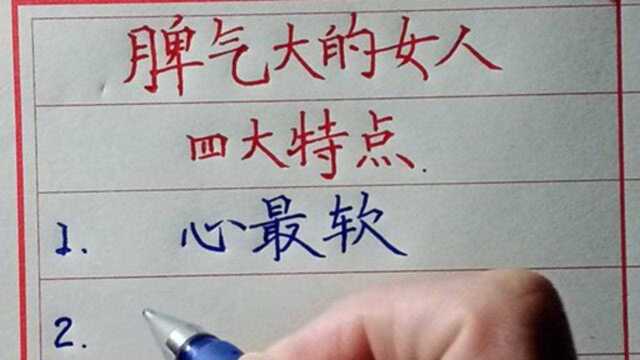 脾气大的女人
四大特点.
1. 心最软
2.